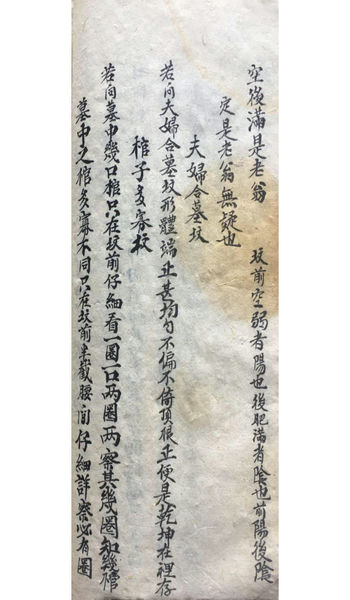 空後滿是老翁　坟前空弱者陽也後肥滿者陰也前陽後陰
定是老翁無疑也
夫婦合墓坟
若问夫婦合墓坟形體端正甚均匀不偏不倚頂根正便是乾坤在裡存
棺子多寡坟
若问墓中幾口棺只在坟前仔細看一圈一口两圈两察其幾圈知幾棺
墓中之棺多寡不同只在坟前半截腰间仔細詳察必有圈